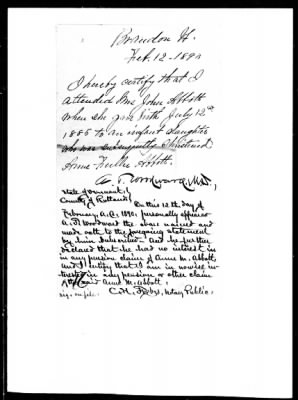 Brandon Vt.
Feb. 12 - 1890
I hereby certify that I
attended Mrs John Abbott
when she gave birth July 12th
1885 to an infant daughter
who was subsequently Christened
Anne Abbott.
A. T. Woodward M.D.
State of Vermont,
County of Rutland } On this 12th day of
February A.D. 1890, personally appeared
A. T. Woodward the above named and
made oath to the foregoing statement
by him subscribed. And he further
declared that he had no interest in
in any pension claim of Anne M. Abbott,
and I certify that I am in nowise in-
terested in any pension or other claim
of the said Anne M. Abbott.
C. H. Notary Public.
sig. on file.